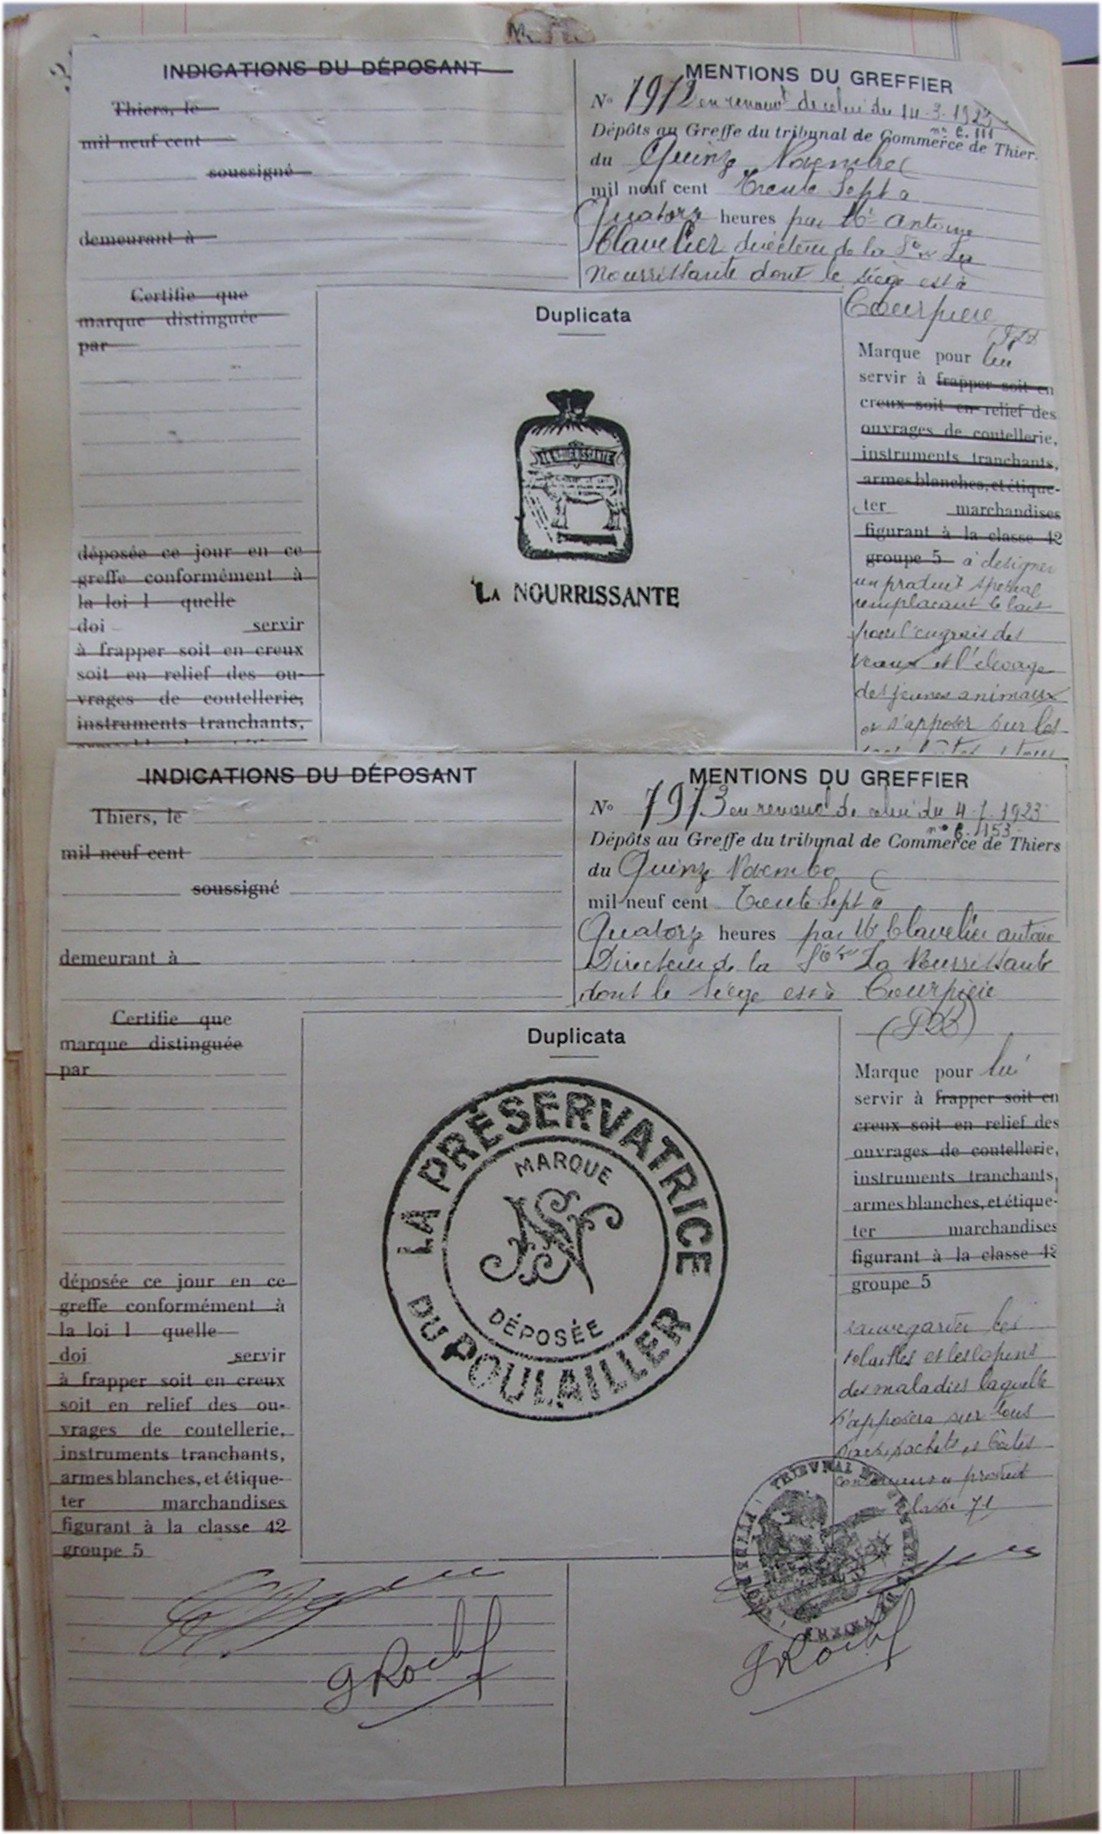 INDICATIONS DU DÉPOSANT
Thiers, le
mil neuf cent
soussigné
demeurant à
Certifie que
marque distinguée
par
déposée ce jour en ce
greffe conformément à
la loi l quelle
doi servir
à frapper soit en creux
soit en relief des ou-
vrages de coutellerie,
instruments tranchants,
MENTIONS DU GREFFIER
No 7972 en renouvt de celui du 14-3-1923
no 6.111
Dépôts au Greffe du tribunal de Commerce de Thier
du Quinze Novembre
mil neuf cent Trente Sept à
Quatorze heures par Mr Antoine
Clavelier directeur de la Sté La
Nourrissante dont le siège est à
Courpière
Duplicata
LA NOURRISSANTE
LA NOURRISSANTE
Marque pour lui
servir à frapper soit en
creux soit en relief des
ouvrages de coutellerie,
instruments tranchants,
armes blanches, et étique-
ter marchandises
figurant à la classe 42
groupe 5 à désigner
un produit spécial
remplaçant le lait
pour l'engrais des
veaux et l'élevage
des jeunes animaux
et s'apposer sur les
INDICATIONS DU DÉPOSANT
Thiers, le
mil neuf cent
soussigné
demeurant à
Certifie que
marque distinguée
par
déposée ce jour en ce
greffe conformément à
la loi l quelle
doi servir
à frapper soit en creux
soit en relief des ou-
vrages de coutellerie,
instruments tranchants,
armes blanches, et étique-
ter marchandises
figurant à la classe 42
groupe 5
MENTIONS DU GREFFIER
No 7973 en renouvt de celui du 4-7-1923
no 6.153
Dépôts au Greffe du tribunal de Commerce de Thiers
du Quinze Novembre
mil neuf cent Trente Sept à
Quatorze heures par Mr Clavelier antoine
Directeur de la Sté La Nourrissante
dont le siège est à Courpière
(P D D)
Duplicata
LA PRÉSERVATRICE
DU POULAILLER
MARQUE
DÉPOSÉE
Marque pour lui
servir à frapper soit en
creux soit en relief des
ouvrages de coutellerie,
instruments tranchants,
armes blanches, et étique-
ter marchandises
figurant à la classe 42
groupe 5
sauvegarder les
volailles et les lapins
des maladies laquelle
s'apposera sur tous
sacs, pachets et boîtes
contenant ce produit
classe 71
TRIBUNAL DE COMMERCE